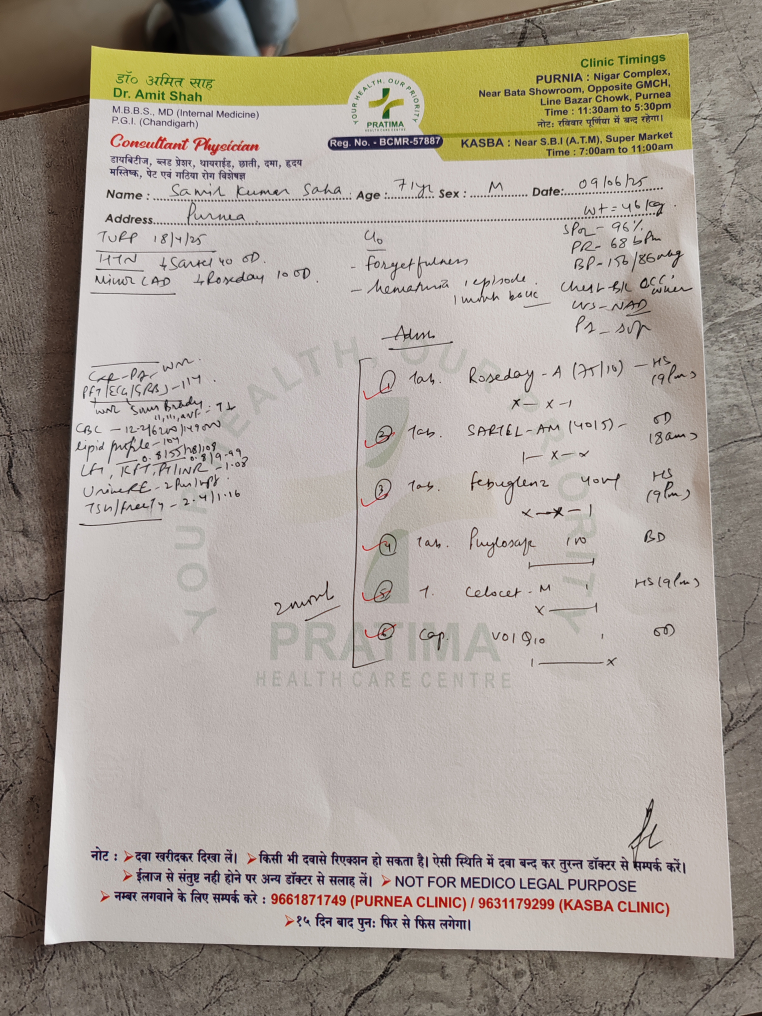 डॉ० अमित साह
Dr. Amit Shah
M.B.B.S., MD (Internal Medicine)
P.G.I. (Chandigarh)
Consultant Physician
डायबिटीज, ब्लड प्रेशर, थायराईड, छाती, दमा, हृदय
मस्तिष्क, पेट एवं गठिया रोग विशेषज्ञ
YOUR HEALTH, OUR PRIORITY
PRATIMA
HEALTH CARE CENTRE
Reg. No. - BCMR-57887
Clinic Timings
PURNIA : Nigar Complex,
Near Bata Showroom, Opposite GMCH,
Line Bazar Chowk, Purnea
Time : 11:30am to 5:30pm
नोट: रविवार पूर्णिया में बन्द रहेगा।
KASBA : Near S.B.I (A.T.M), Super Market
Time : 7:00am to 11:00am
Name : Samir Kumar Saha Age : 71yr Sex : M Date: 09/06/25
Address Purnea
Wt = 46 kg
SPO2 - 96%
PR - 68 bpm
BP - 156/86 mmHg
Chest - B/L occ.
CVS - NAD
TURP 18/4/25
HTN Sartel 40 OD.
Minor CAD Roseday 10 OD.
C/o
- forgetfulness
- hematuria 1 episode
1 month back
PFT/ECG/GRBS - 114
CBC - 12.2/6200/149000
lipid profile - 104
LFT, KFT, PT/INR - 1.08
Urine RE - 2 Pus/hpf
TSH/freeT4 - 2.4/1.16
Adv
1 Tab. Roseday - A (75/10) - HS (9Pm)
x - x - 1
2 Tab. SARTEL-AM (40/5) - OD (8am)
1 - x - x
3 Tab. Febuglenz 40mg HS (9Pm)
x - x - 1
4 Tab. 100 BD
5 T. Celocet - M HS (9Pm)
x - 1
6 Cap. VOI Q10 OD
1 - x
2 month
YOUR HEALTH, OUR PRIORITY
PRATIMA
HEALTH CARE CENTRE
नोट : ➤ दवा खरीदकर दिखा लें। ➤ किसी भी दवासे रिएक्शन हो सकता है। ऐसी स्थिति में दवा बन्द कर तुरन्त डॉक्टर से सम्पर्क करें।
➤ ईलाज से संतुष्ट नही होने पर अन्य डॉक्टर से सलाह लें। ➤ NOT FOR MEDICO LEGAL PURPOSE
➤ नम्बर लगवाने के लिए सम्पर्क करे : 9661871749 (PURNEA CLINIC) / 9631179299 (KASBA CLINIC)
➤ १५ दिन बाद पुन: फिर से फिस लगेगा।